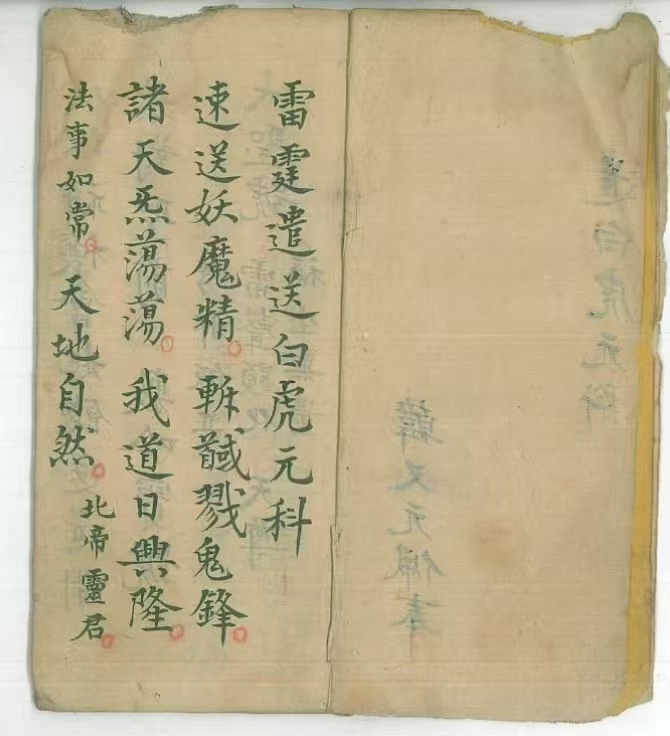 雷霆遣送白虎元科
速送妖魔精。斬馘戮鬼鋒。
諸天炁蕩蕩。我道日興隆。
法事如常。天地自然。北帝靈君。